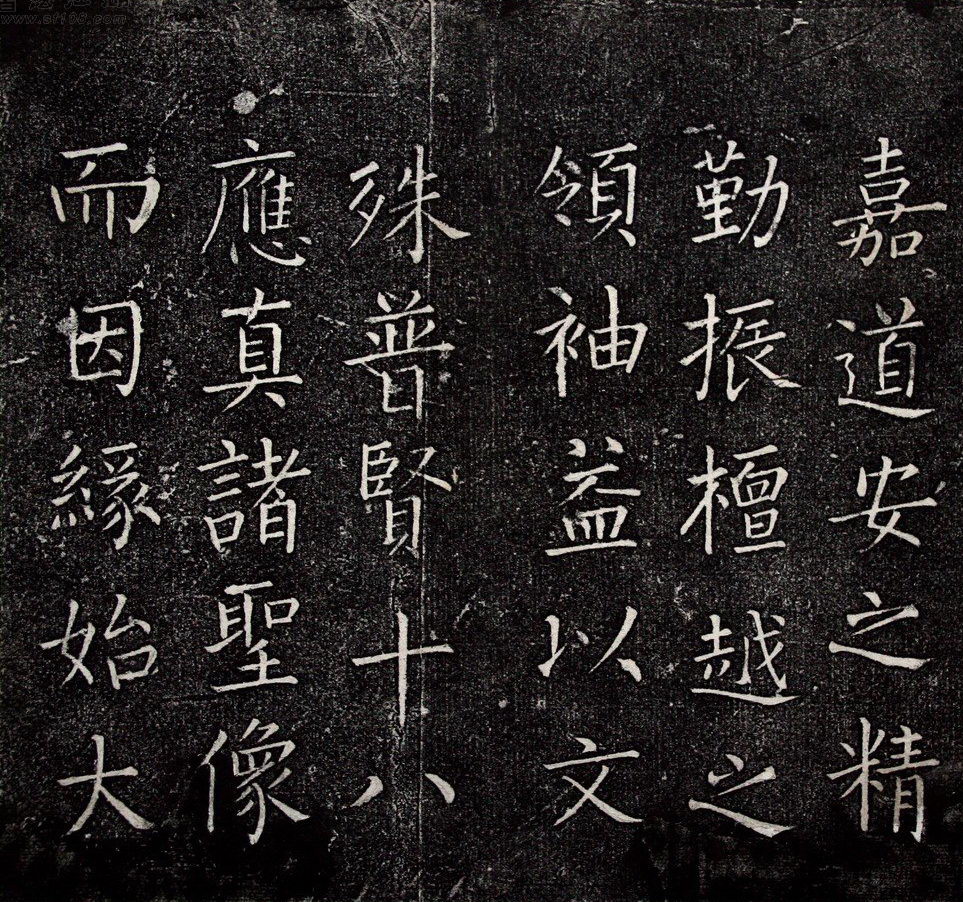 嘉道安之精
勤振檀越之
領袖益以文
殊普賢十八
應真諸聖像
而因緣始大